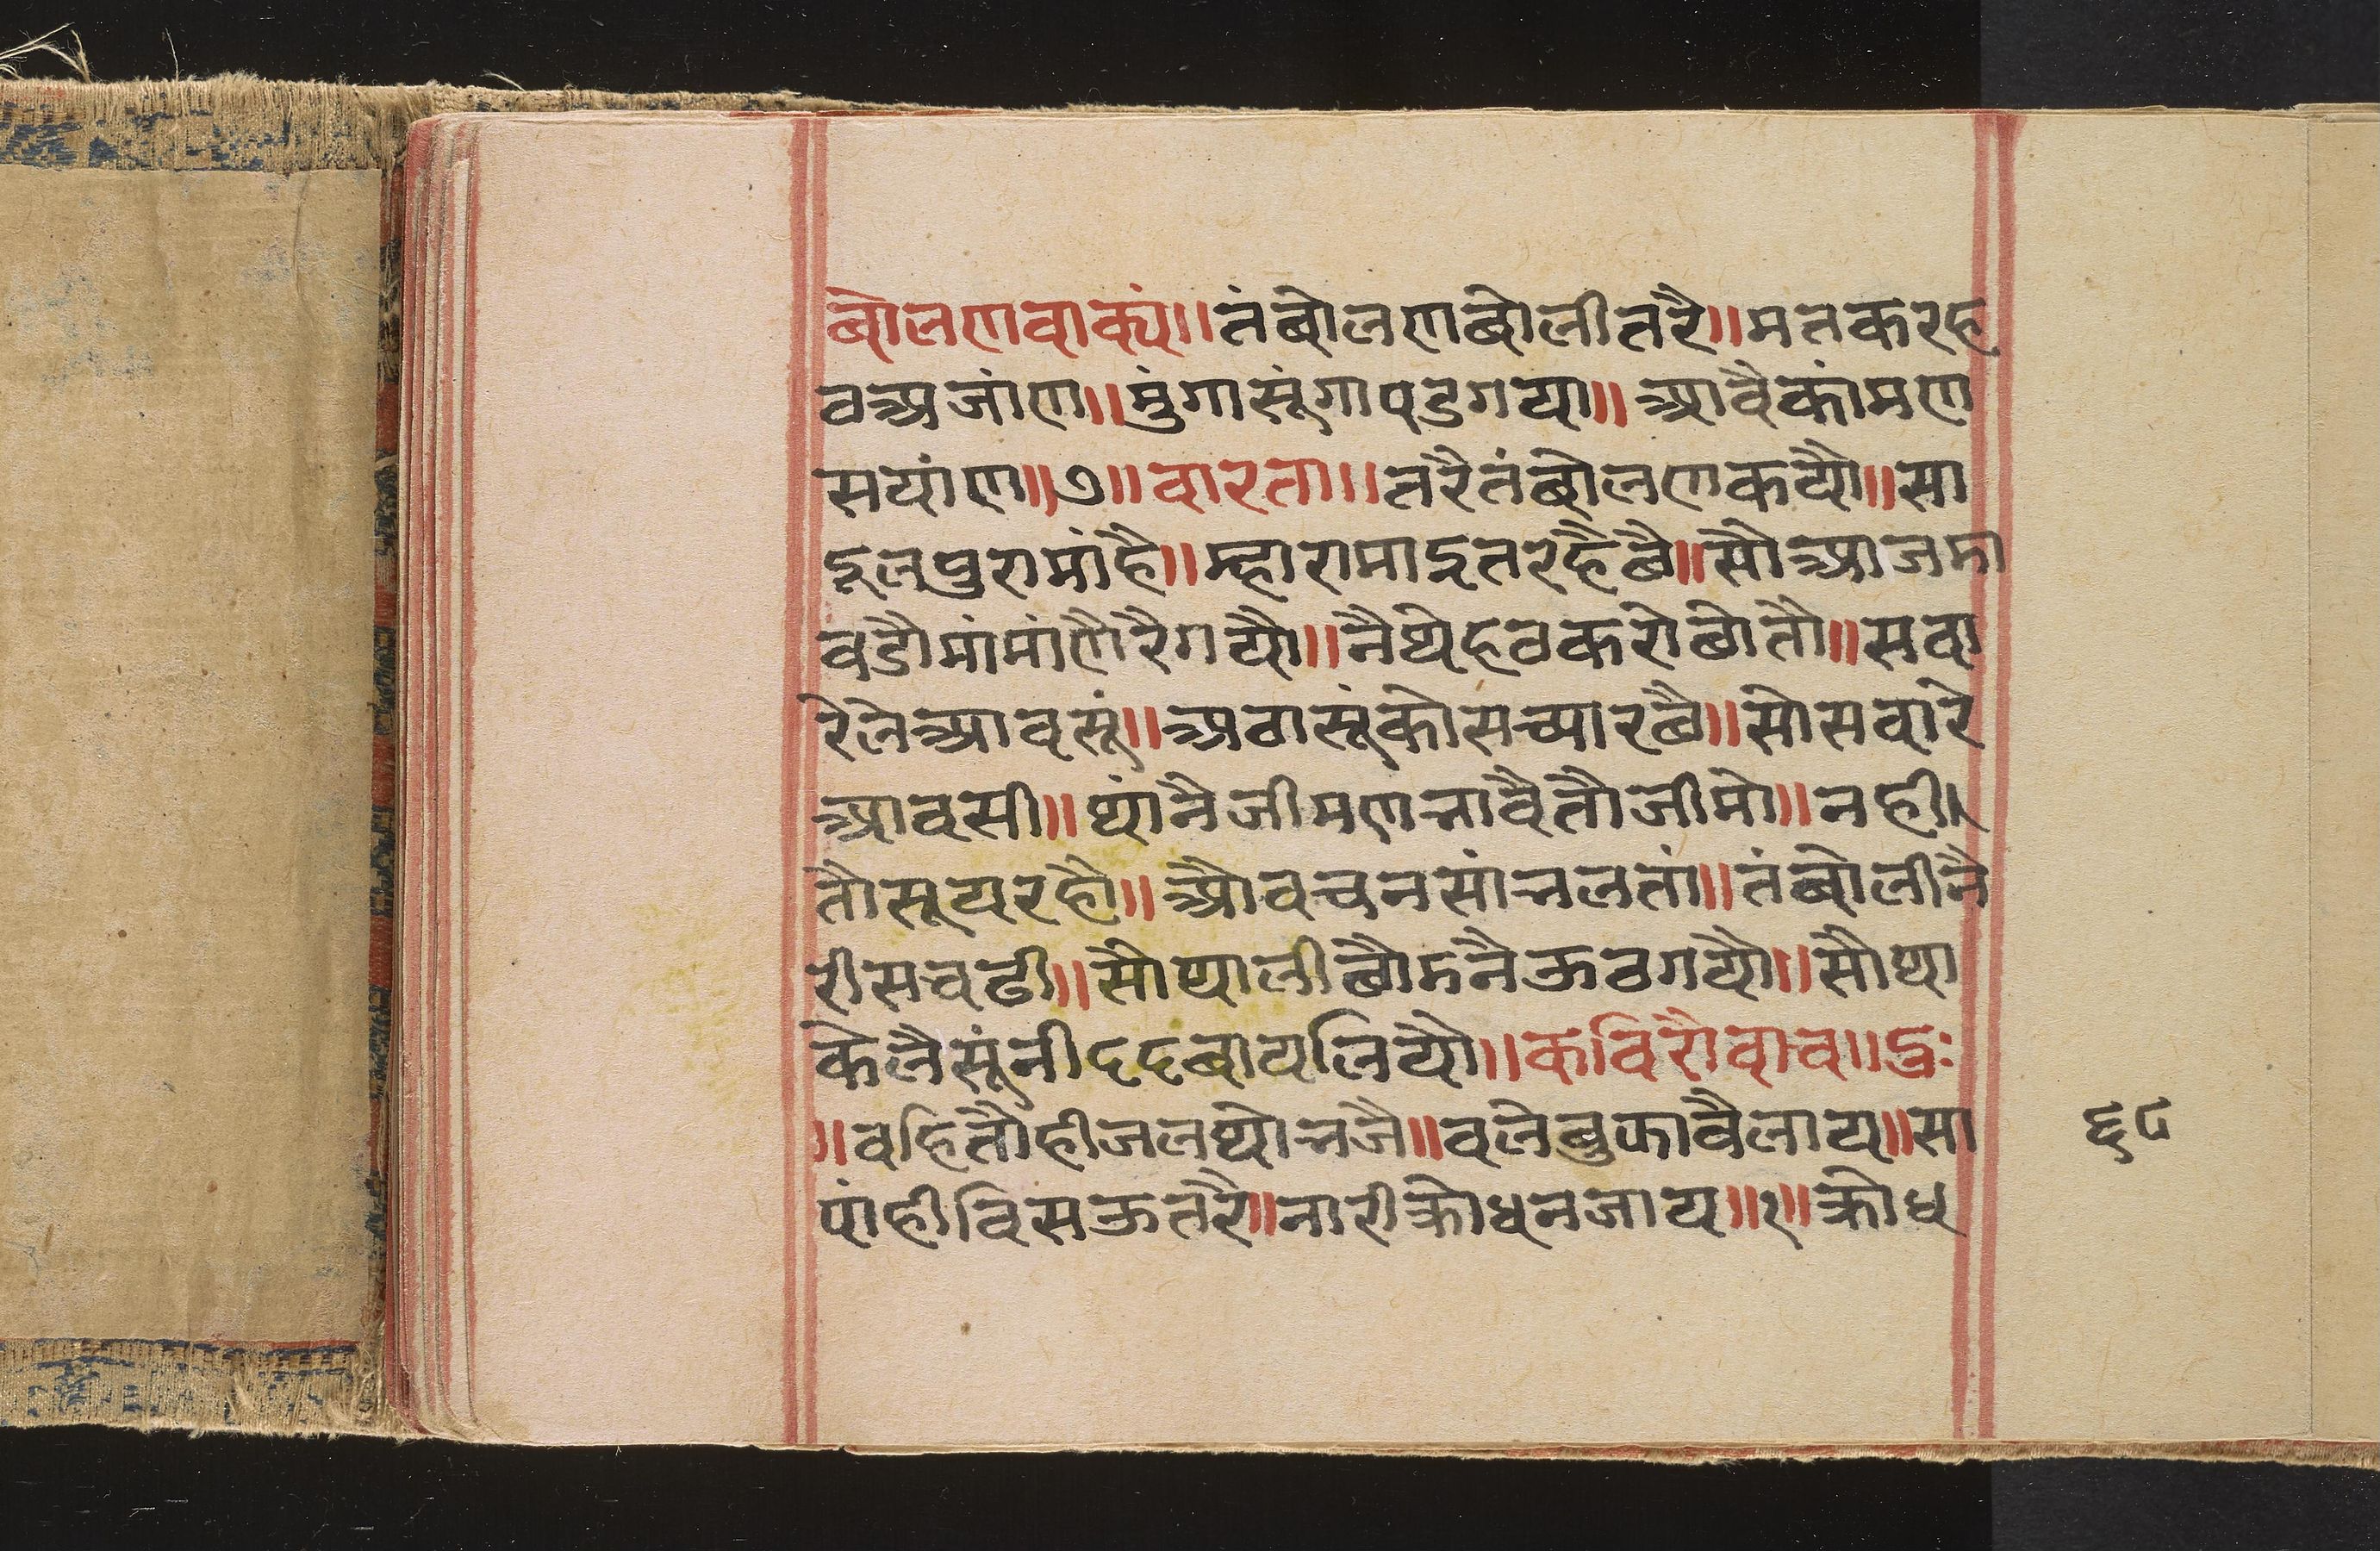 बोलणवाक्यं॥तंबोलणबोलीतरै॥मतकरह
वअजांण॥मुंगासूंगापडगया॥आवैकांमण
सयांण॥७॥वारता॥तरैतंबोलणकयौ॥सा
दूलपुरामांहै॥म्हारामाईतरहैछै॥सौआजमा
वडौमांमांणैरैगयौ॥नैथेहठकरोछोतौ॥सवा
रेलेआवसूं॥अठासूंकोसच्यारछै॥सोसवारे
आवसी॥थांनैजीमणभावैतौजीमो॥नही।
तौसूयरहौ॥औवचनसांभलतां॥तंबोलीनै
रीसचढी॥सौथालीछोडनैऊठगयौ॥सौथा
केलैसूंनीददबायलियौ॥कविरौवाच॥दुः
॥वहितौहीजलथोभजै॥वलेबुझावैलाय॥सा
पांहीविसऊतरै॥नारीक्रोधनजाय॥१॥क्रोध
६८